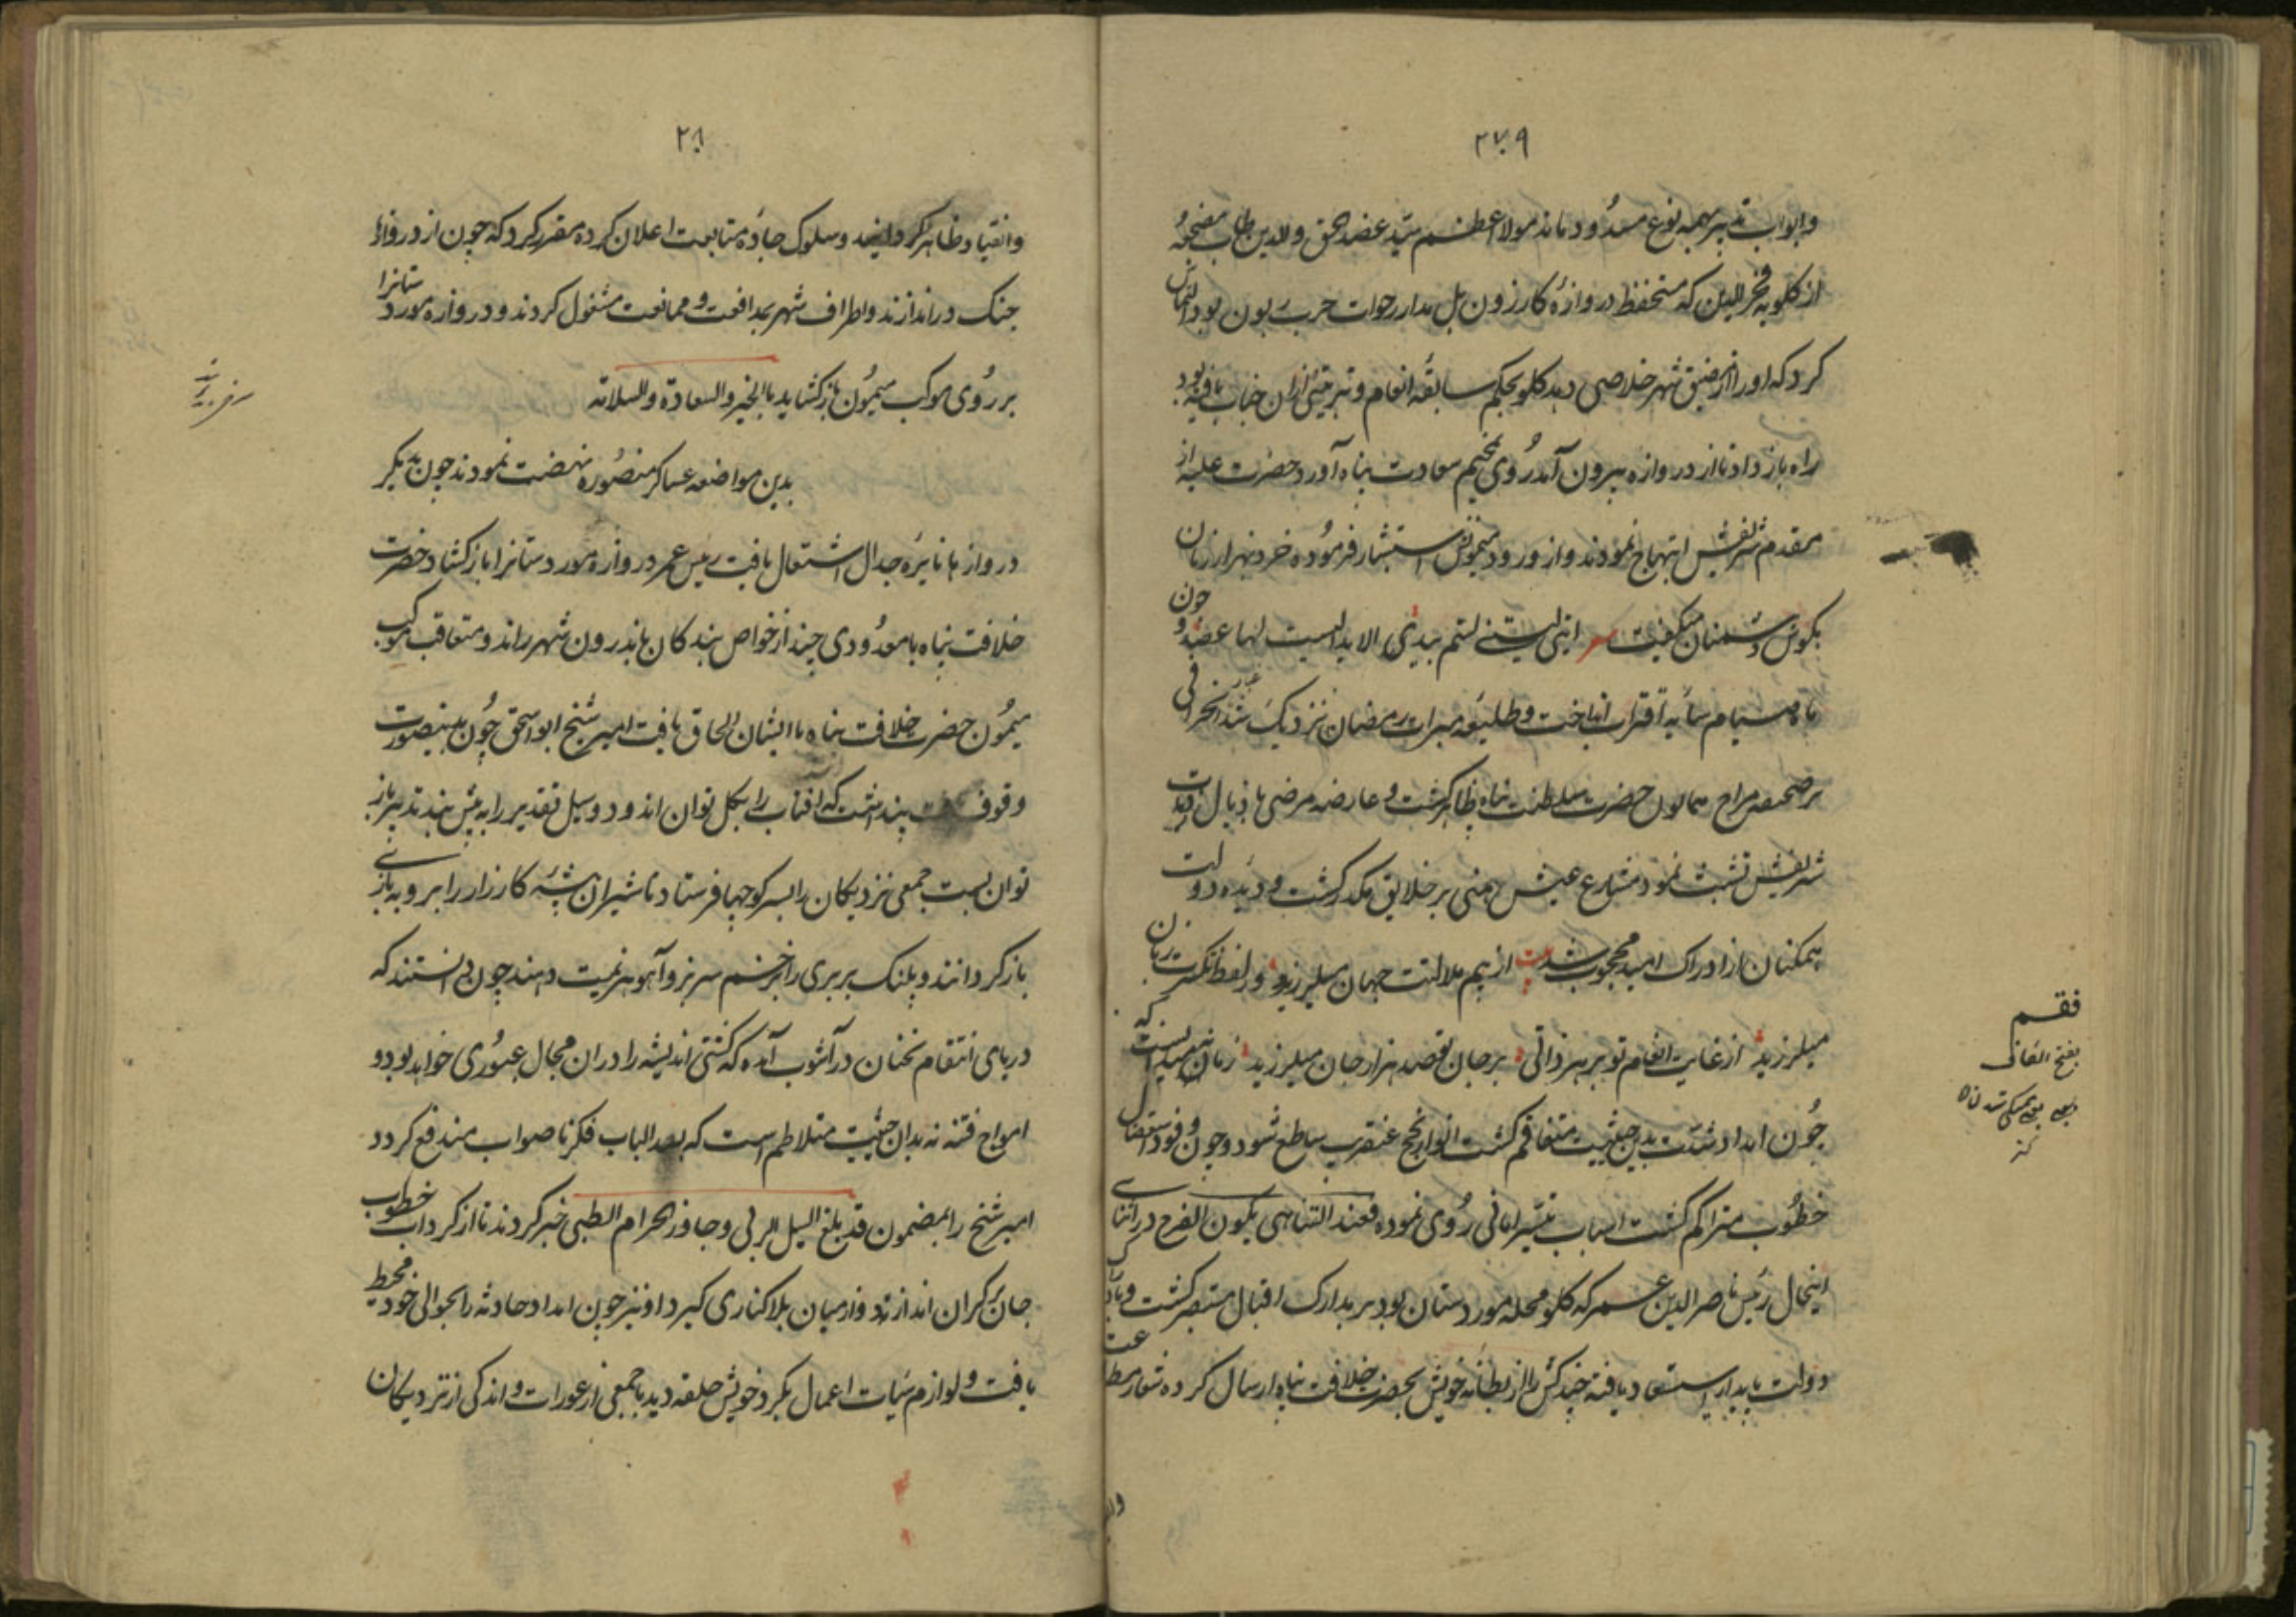 ۲۷۹
وابواب تدبیر بهمه نوع مسدود ماند مولا اعظم سید عضد الحق والدین طاب مضجعه
از کلو فخر الدین که مستحفظ دروازه کازرون بل مدار رحوات حرب بون بود التماس
کرد که اورا از مضیق شهر خلاصی دهد کلو بحکم سابقه انعام و تربیتی که از ان جناب یافته بود
راه باز داد تا از دروازه بیرون آمد روی بمخیم سعادت پناه آورد حضرت علیه از
مقدم شریفش ابتهاج نمودند و از ورود میمونش استبشار فرموده خرد بهزار زبان
بکوش دشمنان میکفت اینی لبتنی لستم بیدی الا ید الیست لها عضد و چون
ماه صیام سایه اقتراب انداخت و طلیعه مبرات رمضان نزدیک شد انحرافی
بر صحیفه مزاج همایون حضرت سلطنت پناه ظاهر کشت و عارضه مرضی باذیال ذات
شریفش تشبث نمود مشارع عیش هنی بر خلایق مکدر کشت و دیده دولت
همکنان از ادراک امید محجوب شد بیت از بیم ملالتت جهان میلرزید وز لفظ تکسرت زبان
میلرزید از غایت انعام تو بر هر ذاتی بر جان تو صد هزار جان میلرزید زمان میدانست که
چون امداد شدت بدین حیثیت متفاقم کشت انوار نجح عنقریب ساطع شود و چون وفود استقصال
خطوب متراکم کشت اسباب تیسر امانی روی نموده فعند التناهی یکون الفرج در اثنای
اینحال رئیس ناصر الدین عمر که کلو محله موردستان بود بر مدارک اقبال مستبصر کشت و بتأیید
دولت پایدار استسعاد یافته چند کس را از بطانه خویش بحضرت خلافت پناه ارسال کرده شعار مطاوعت
فقم
بفتح القاف
۲۸۰
وانقیاد ظاهر کردانید و سلوک جاده متابعت اعلان کرده مقرر کرد که چون از دروازها
جنک در اندازند و اطراف شهر بمدافعت و ممانعت مشغول کردند و دروازه موردستانرا
بر روی موکب میمون باز کشاید بالخیر والسعادة والسلامة
بدین مواضعه عساکر منصوره نهضت نمودند چون بدیکر
دروازها نایره جدال اشتعال یافت رئیس عمر دروازه موردستانرا باز کشاد حضرت
خلافت پناه با معدودی چند از خواص بندکان باندرون شهر راند و متعاقب موکب
میمون حضرت خلافت پناه با ایشان الحاق یافت امیر شیخ ابواسحق چون برینصورت
وقوف یافت پنداشت که آفتاب را بکل توان اندود و سیل تقدیر را به پیش بند تدبیر باز
توان بست جمعی نزدیکان را بسر کوچها فرستاد تا شیران بیشه کارزار را بروبه بازی
باز کردانند و پلنک بربری را بزخم سر بز و آهو هزیمت دهند چون دانستند که
دریای انتقام نچنان در آشوب آمده که کشتی اندیشه را دران مجال عبوری خواهد بود و
امواج فتنه نه بدان حیثیت متلاطم است که بعد الباب فکر ناصواب مندفع کردد
امیر شیخ را بمضمون قد بلغ السیل الزبی و جاوز الحزام الطبی خبر کردند تا از کرداب خطوب
جان بر کران اندازد و از میان بلا کناری کیرد او نیز چون امداد حادثه را بحوالی خود محیط
یافت و لوازم سیات اعمال بکرد خویش حلقه دید با جمعی از عورات و اندکی از نزدیکان